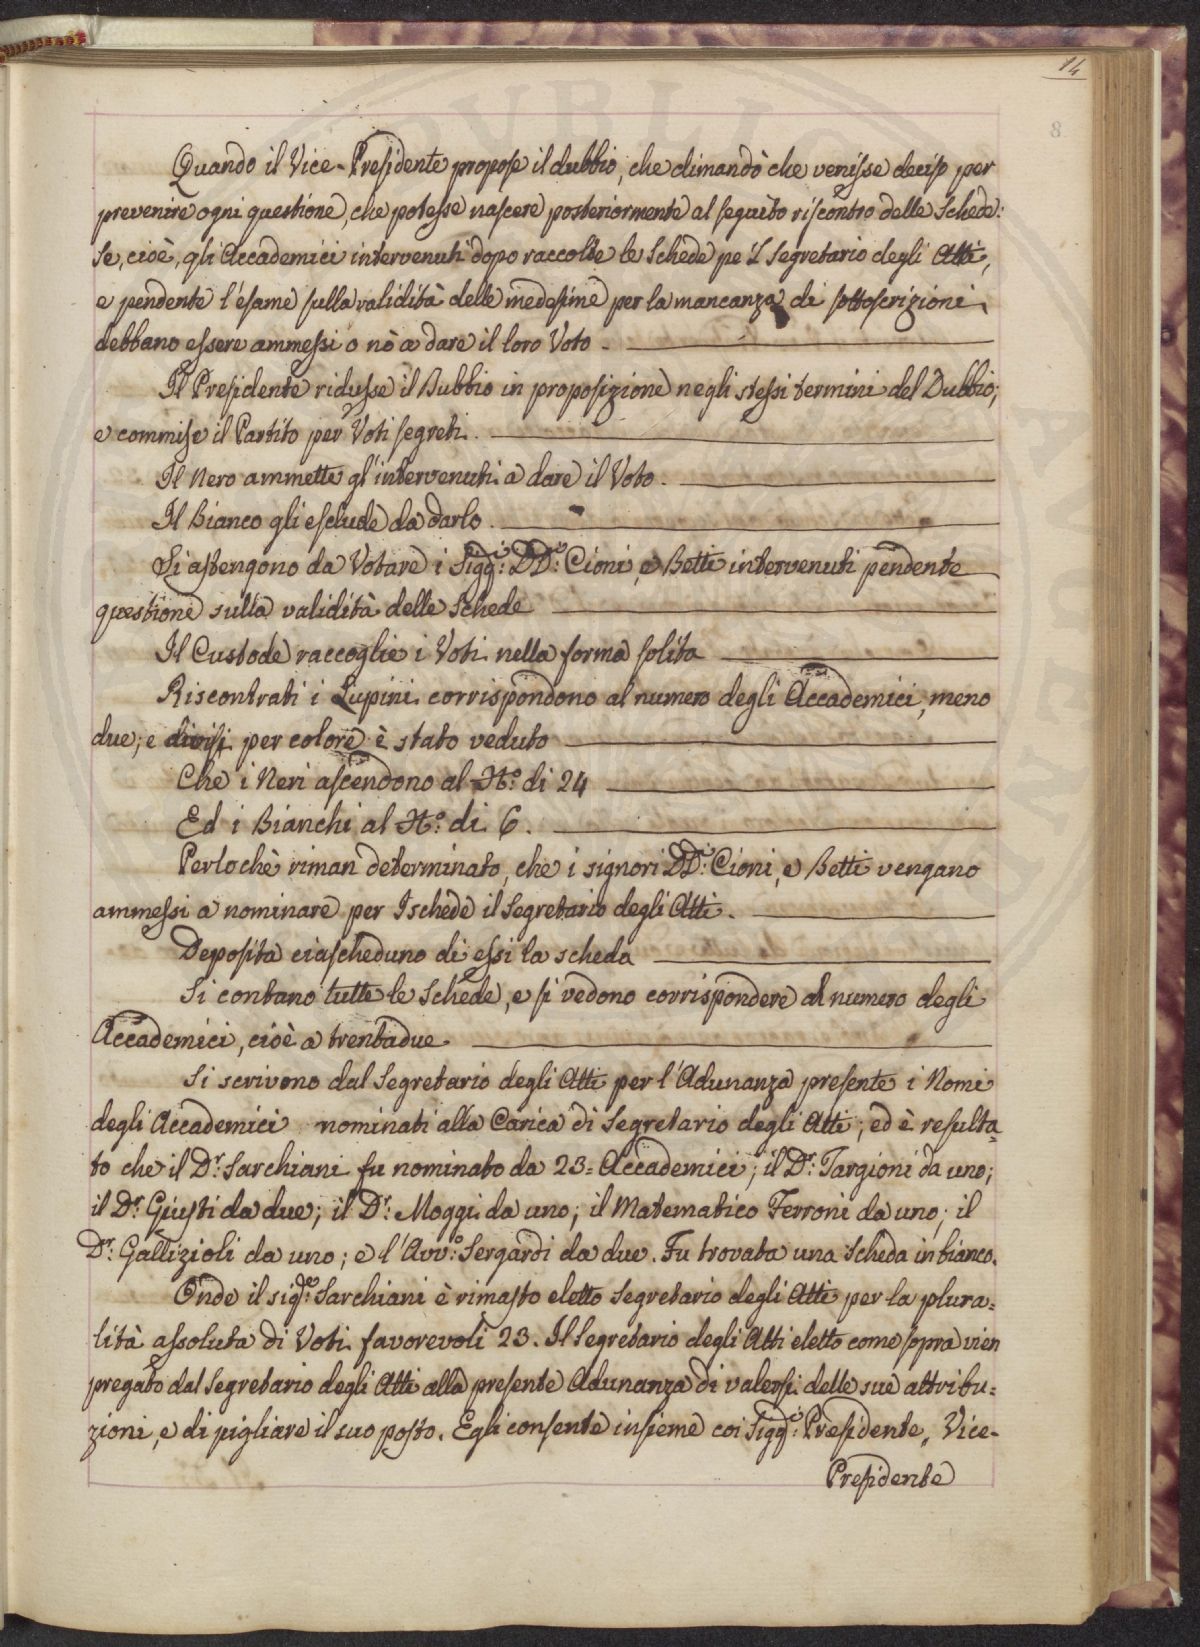 14
8
Quando il Vice-Presidente propose il dubbio, che dimandò che venisse deciso per
prevenire ogni questione, che potesse nascere posteriormente al seguito riscontro delle Schede:
Se, cioè, gli Accademici intervenuti dopo raccolte le Schede pe 'l Segretario degli Atti,
e pendente l'esame sulla validità delle medesime per la mancanza di sottoscrizioni,
debbano essere ammessi o nò a dare il loro Voto.
Il Presidente ridusse il Dubbio in proposizione negli stessi termini del Dubbio;
e commise il Partito per Voti segreti.
Il Nero ammette gl'intervenuti a dare il Voto.
Il Bianco gli esclude da darlo.
Si astengono da Votare i Sigg.i DD.i Cioni, e Betti intervenuti pendente
questione sulla validità delle Schede
Il Custode raccoglie i Voti nella forma solita
Riscontrati i Lupini corrispondono al numero degli Accademici, meno
due; e divisi per colore è stato veduto
Che i Neri ascendono al N.o di 24
Ed i Bianchi al N.o di 6.
Perlochè riman determinato, che i signori DD.i Cioni, e Betti vengano
ammessi a nominare per Ischede il Segretario degli Atti.
Deposita ciascheduno di essi la scheda
Si contano tutte le Schede, e si vedono corrispondere al numero degli
Accademici, cioè a trentadue.
Si scrivono dal Segretario degli Atti per l'Adunanza presente i Nomi
degli Accademici nominati alla Carica di Segretario degli Atti; ed è resulta=
to che il D.r Sarchiani fu nominato da 23= Accademici; il D.r Targioni da uno;
il D.r Giusti da due; il D.r Moggi da uno; il Matematico Ferroni da uno; il
D.r Gallizioli da uno; e l'Avv.o Sergardi da due. Fu trovata una Scheda in bianco.
Onde il sig.re Sarchiani è rimasto eletto Segretario degli Atti per la plura=
lità assoluta di Voti favorevoli 23. Il Segretario degli Atti eletto come sopra vien
pregato dal Segretario degli Atti alla presente Adunanza di valersi delle sue attribu=
zioni, e di pigliare il suo posto. Egli consente insieme coi Sigg.i Presidente, Vice-
Presidente